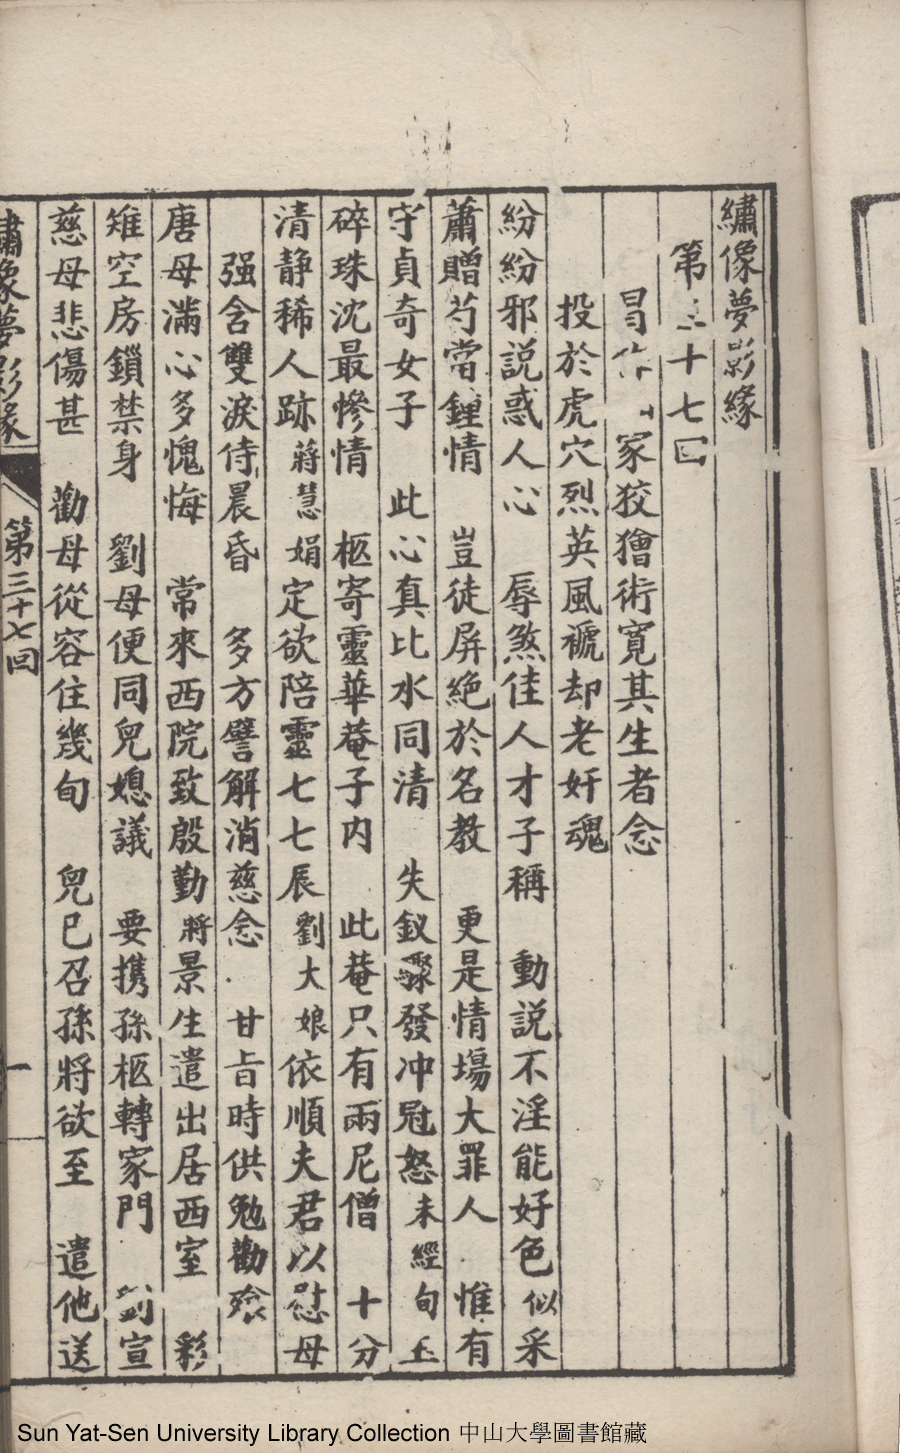 繡像夢影緣
第三十七囘
冒 家狡獪術寛其生者念
投於虎穴烈英風褫却老奸魂
紛紛邪説惑人心 辱煞佳人才子稱 動説不淫能好色 似采
蕭贈芍當鍾情 豈徒屏絶於名教 更是情塲大罪人 惟有
守貞奇女子 此心真比水同清 失釵驟發冲冠怒 未經旬玉
碎珠沈最慘情 柩寄靈華菴子内 此菴只有兩尼僧 十分
清静稀人跡 蔣慧娟定欲陪靈七七辰 劉大娘依順夫君以慰母
强含雙淚侍晨昏 多方譬解消慈念 甘旨時供勉勸飱
唐母滿心多愧悔 常來西院致殷勤 將景生遣出居西室 彩
雉空房鎖禁身 劉母便同兒媳議 要携孫柩轉家門 劉宣
慈母悲傷甚 勸母從容住幾旬 兒已召孫將欲至 遣他送
繡像夢影緣 第三十七回 一
Sun Yat-Sen University Library Collection 中山大學圖書館藏